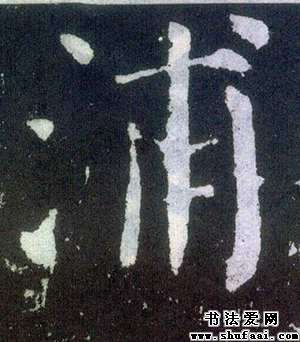 浦
书法爱网
www.shufaai.com